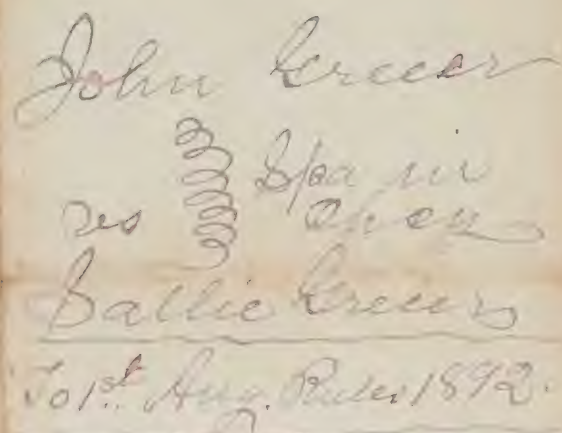 John Greer
Spa in
vs Chcy
Sallie Greer
To 1st Aug. Rules 1892.